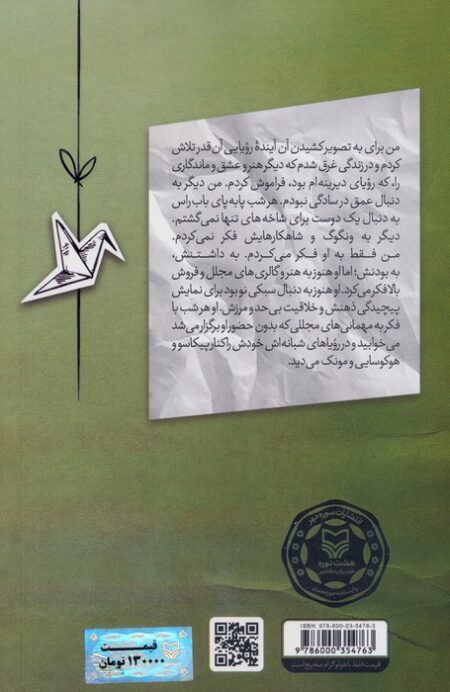 من برای به تصویر کشیدن آن آیندهٔ رؤیایی آن قدر تلاش
کردم و در زندگی غرق شدم که دیگر هنر و عشق و ماندگاری
را، که رؤیای دیرینه‌ام بود، فراموش کردم. من دیگر به
دنبال عمق در سادگی نبودم. هر شب پابه‌پای باب راس
به دنبال یک دوست برای شاخه‌های تنها نمی‌گشتم.
دیگر به ونگوگ و شاهکارهایش فکر نمی‌کردم.
من فقط به او فکر می‌کردم. به داشتنش،
به بودنش؛ اما او هنوز به هنر و گالری‌های مجلل و فروش
بالا فکر می‌کرد. او هنوز به دنبال سبکی نو بود برای نمایش
پیچیدگی ذهنش و خلاقیت بی‌حد و مرزش. او هر شب با
فکر به مهمانی‌های مجللی که بدون حضور او برگزار می‌شد
می‌خوابید و در رؤیاهای شبانه‌اش خودش را کنار پیکاسو و
هوکوسایی و مونک می‌دید.
انتشارات سوره مهر
هشت دوره
ISBN: 978-600-03-5476-3
9 786000 354763
قیمت فقط با هولوگرام صحیح است
قیمت
۱۳۰۰۰۰ تومان